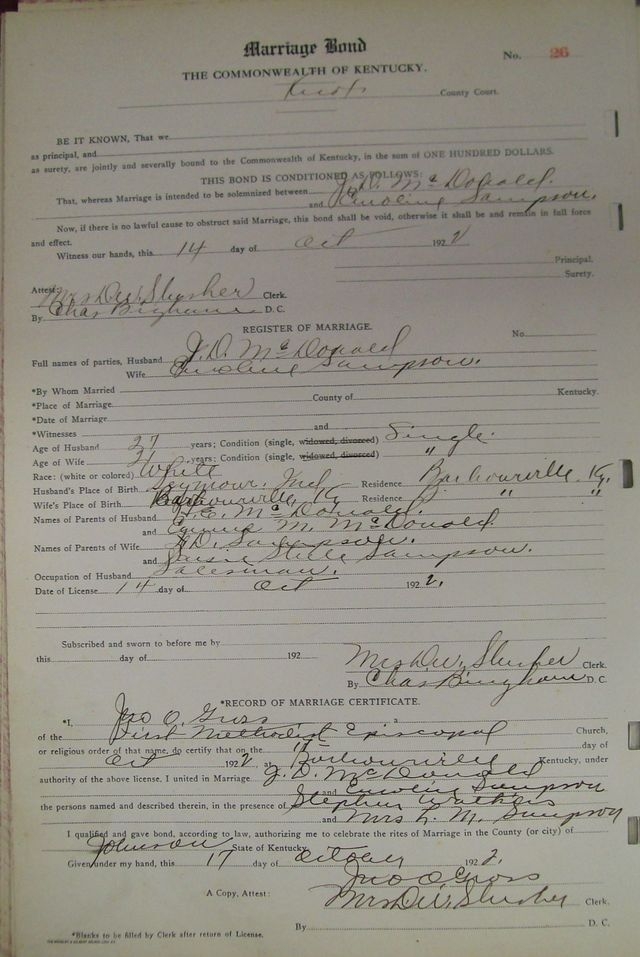 Marriage Bond
No. 26
THE COMMONWEALTH OF KENTUCKY.
Knox County Court.
BE IT KNOWN, That we
as principal, and
as surety, are jointly and severally bound to the Commonwealth of Kentucky, in the sum of ONE HUNDRED DOLLARS.
THIS BOND IS CONDITIONED AS FOLLOWS:
That, whereas Marriage is intended to be solemnized between J. D. McDonald.
and Caroline Sampson.
Now, if there is no lawful cause to obstruct said Marriage, this bond shall be void, otherwise it shall be and remain in full force
and effect.
Witness our hands, this 14 day of Oct 1922
Principal.
Surety.
Attest: Mrs D W Slusher Clerk.
By Chas Bingham D. C.
REGISTER OF MARRIAGE.
No.
Full names of parties, Husband J. D. McDonald
Wife Caroline Sampson.
*By Whom Married
*Place of Marriage County of Kentucky.
*Date of Marriage
*Witnesses and
Age of Husband 27 years; Condition (single, widowed, divorced) Single.
Age of Wife 21 years; Condition (single, widowed, divorced) "
Race: (white or colored) White
Husband's Place of Birth Seymour, Ind Residence Barbourville, Ky.
Wife's Place of Birth Barbourville, Ky Residence " "
Names of Parents of Husband McDonald.
and Emma M. McDonald.
Names of Parents of Wife Sampson.
and Susie Steele Sampson.
Occupation of Husband Salesman.
Date of License 14 day of Oct 1922.
Subscribed and sworn to before me by
this day of 192
Mrs D W. Slusher Clerk.
By Chas Bingham D. C.
*RECORD OF MARRIAGE CERTIFICATE.
*I, Jno O. Gross a
of the First Methodist Episcopal Church,
or religious order of that name, do certify that on the 17 day of
Oct 1922, at Barbourville Kentucky, under
authority of the above license, I united in Marriage J. D. McDonald
and Caroline Sampson
the persons named and described therein, in the presence of Stephen Watkins
and Mrs L. M. Sampson
I qualified and gave bond, according to law, authorizing me to celebrate the rites of Marriage in the County (or city) of
Johnson State of Kentucky.
Given under my hand, this 17 day of October 1922.
Jno O Gross
A Copy, Attest: Mrs D W Slusher Clerk.
By D. C.
*Blanks to be filled by Clerk after return of License.